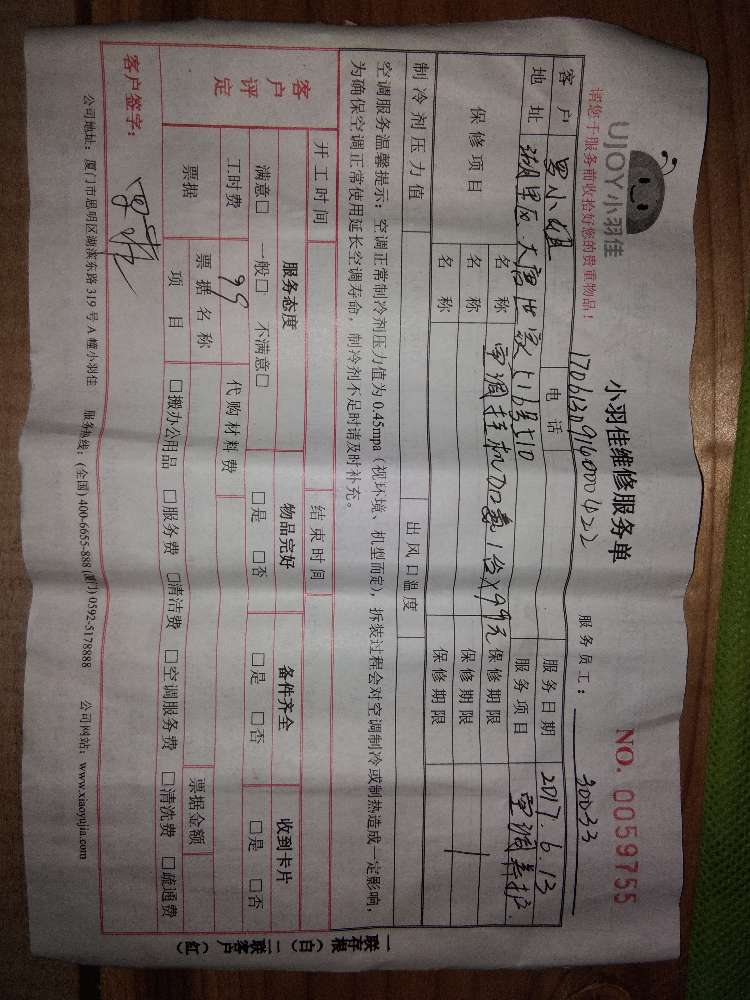 UJOY小羽佳
小羽佳维修服务单
NO. 0059755
请您于服务前收拾好您的贵重物品！
1706130916000422
服务员工： 30033
客户 罗小姐 电话 服务日期 2017.6.13
地址 湖里区.大唐世家 服务项目 空调养护
保修项目 名称 空调挂机加氟1台×99元 保修期限
名称 保修期限
名称 保修期限
制冷剂压力值 出风口温度
空调服务温馨提示：空调正常制冷剂压力值为 0.45mpa（视环境、机型而定），拆装过程会对空调制冷或制热造成一定影响，
为确保空调正常使用延长空调寿命，制冷剂不足时请及时补充。
开工时间 结束时间
客户评定 服务态度 物品完好 备件齐全 收到卡片
满意□ 一般□ 不满意□ □是 □否 □是 □否 □是 □否
工时费 99 代购材料费
票据 票据名称 票据金额
项目 □搬办公用品 □服务费 □清洁费 □空调服务费 □清洗费 □疏通费
客户签字：
公司地址：厦门市思明区湖滨东路 319 号 A 幢小羽佳 服务热线：(全国) 400-6655-888 (厦门) 0592-5178888 公司网站：www.xiaoyujia.com
一联存根（白）二联客户（红）